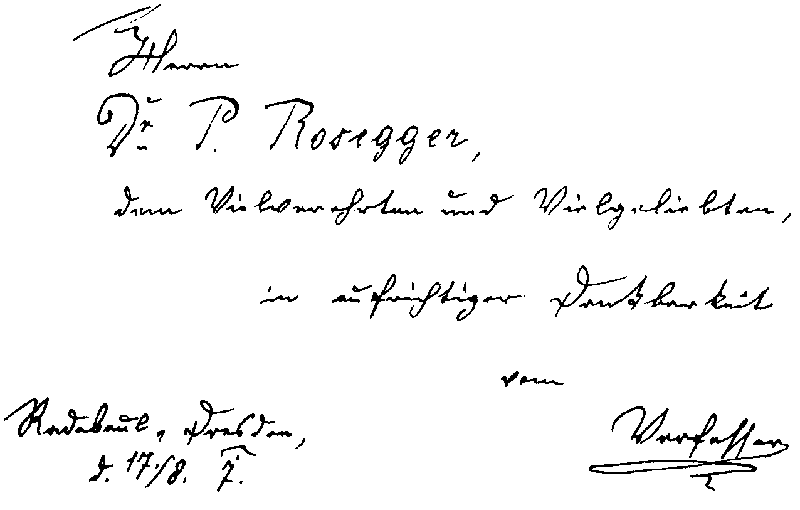 Herrn
Dr. P. Rosegger,
dem Vielverehrten und Vielgeliebten,
in aufrichtiger Dankbarkeit
vom
Verfasser
Radebeul-Dresden,
d. 17./8. 7.